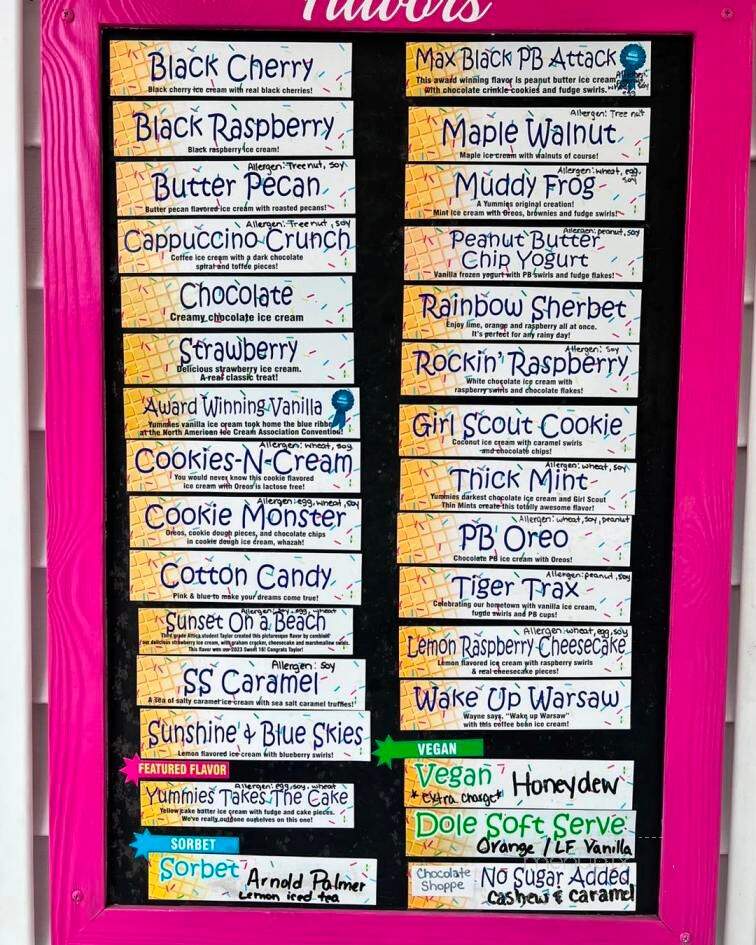 flavors
Black Cherry
Black cherry ice cream with real black cherries!
Black Raspberry
Black raspberry ice cream!
Allergen: Tree nut, soy
Butter Pecan
Butter pecan flavored ice cream with roasted pecans!
Allergen: Tree nut, soy
Cappuccino Crunch
Coffee ice cream with a dark chocolate
spiral and toffee pieces!
Chocolate
Creamy chocolate ice cream
Strawberry
Delicious strawberry ice cream.
A real classic treat!
Award Winning Vanilla
Yummies vanilla ice cream took home the blue ribbon
at the North American Ice Cream Association Convention!
Allergen: wheat, soy
Cookies-N-Cream
You would never know this cookie flavored
ice cream with Oreos is lactose free!
Allergen: egg, wheat, soy
Cookie Monster
Oreos, cookie dough pieces, and chocolate chips
in cookie dough ice cream, whazah!
Cotton Candy
Pink & blue to make your dreams come true!
Allergen: soy, egg, wheat
Sunset On a Beach
Third grade Attica student Taylor created this picturesque flavor by combining
our delicious strawberry ice cream, with graham cracker, cheesecake and marshmallow swirls.
This flavor won our 2023 Sweet 16! Congrats Taylor!
Allergen: soy
SS Caramel
A sea of salty caramel ice cream with sea salt caramel truffles!
Sunshine & Blue Skies
Lemon flavored ice cream with blueberry swirls!
FEATURED FLAVOR
Allergen: egg, soy, wheat
Yummies Takes The Cake
Yellow cake batter ice cream with fudge and cake pieces.
We've really outdone ourselves on this one!
SORBET
Sorbet Arnold Palmer
Lemon iced tea
Max Black PB Attack
This award winning flavor is peanut butter ice cream
with chocolate crinkle cookies and fudge swirls.
Allergen:
wheat, soy
egg
Allergen: Tree nut
Maple Walnut
Maple ice cream with walnuts of course!
Allergen: wheat, egg,
soy
Muddy Frog
A Yummies original creation!
Mint ice cream with Oreos, brownies and fudge swirls!
Allergen: peanut, soy
Peanut Butter
Chip Yogurt
Vanilla frozen yogurt with PB swirls and fudge flakes!
Rainbow Sherbet
Enjoy lime, orange and raspberry all at once.
It's perfect for any rainy day!
Allergen: soy
Rockin' Raspberry
White chocolate ice cream with
raspberry swirls and chocolate flakes!
Girl Scout Cookie
Coconut ice cream with caramel swirls
and chocolate chips!
Allergen: wheat, soy
Thick Mint
Yummies darkest chocolate ice cream and Girl Scout
Thin Mints create this totally awesome flavor!
Allergen: wheat, soy, peanut
PB Oreo
Chocolate PB ice cream with Oreos!
Allergen: peanut, soy
Tiger Trax
Celebrating our hometown with vanilla ice cream,
fudge swirls and PB cups!
Allergen: wheat, egg, soy
Lemon Raspberry Cheesecake
Lemon flavored ice cream with raspberry swirls
& real cheesecake pieces!
Wake Up Warsaw
Wayne says, "Wake up Warsaw"
with this coffee bean ice cream!
VEGAN
Vegan Honeydew
*extra charge*
Dole Soft Serve
Orange / LF Vanilla
Chocolate
Shoppe
No Sugar Added
Cashew & Caramel